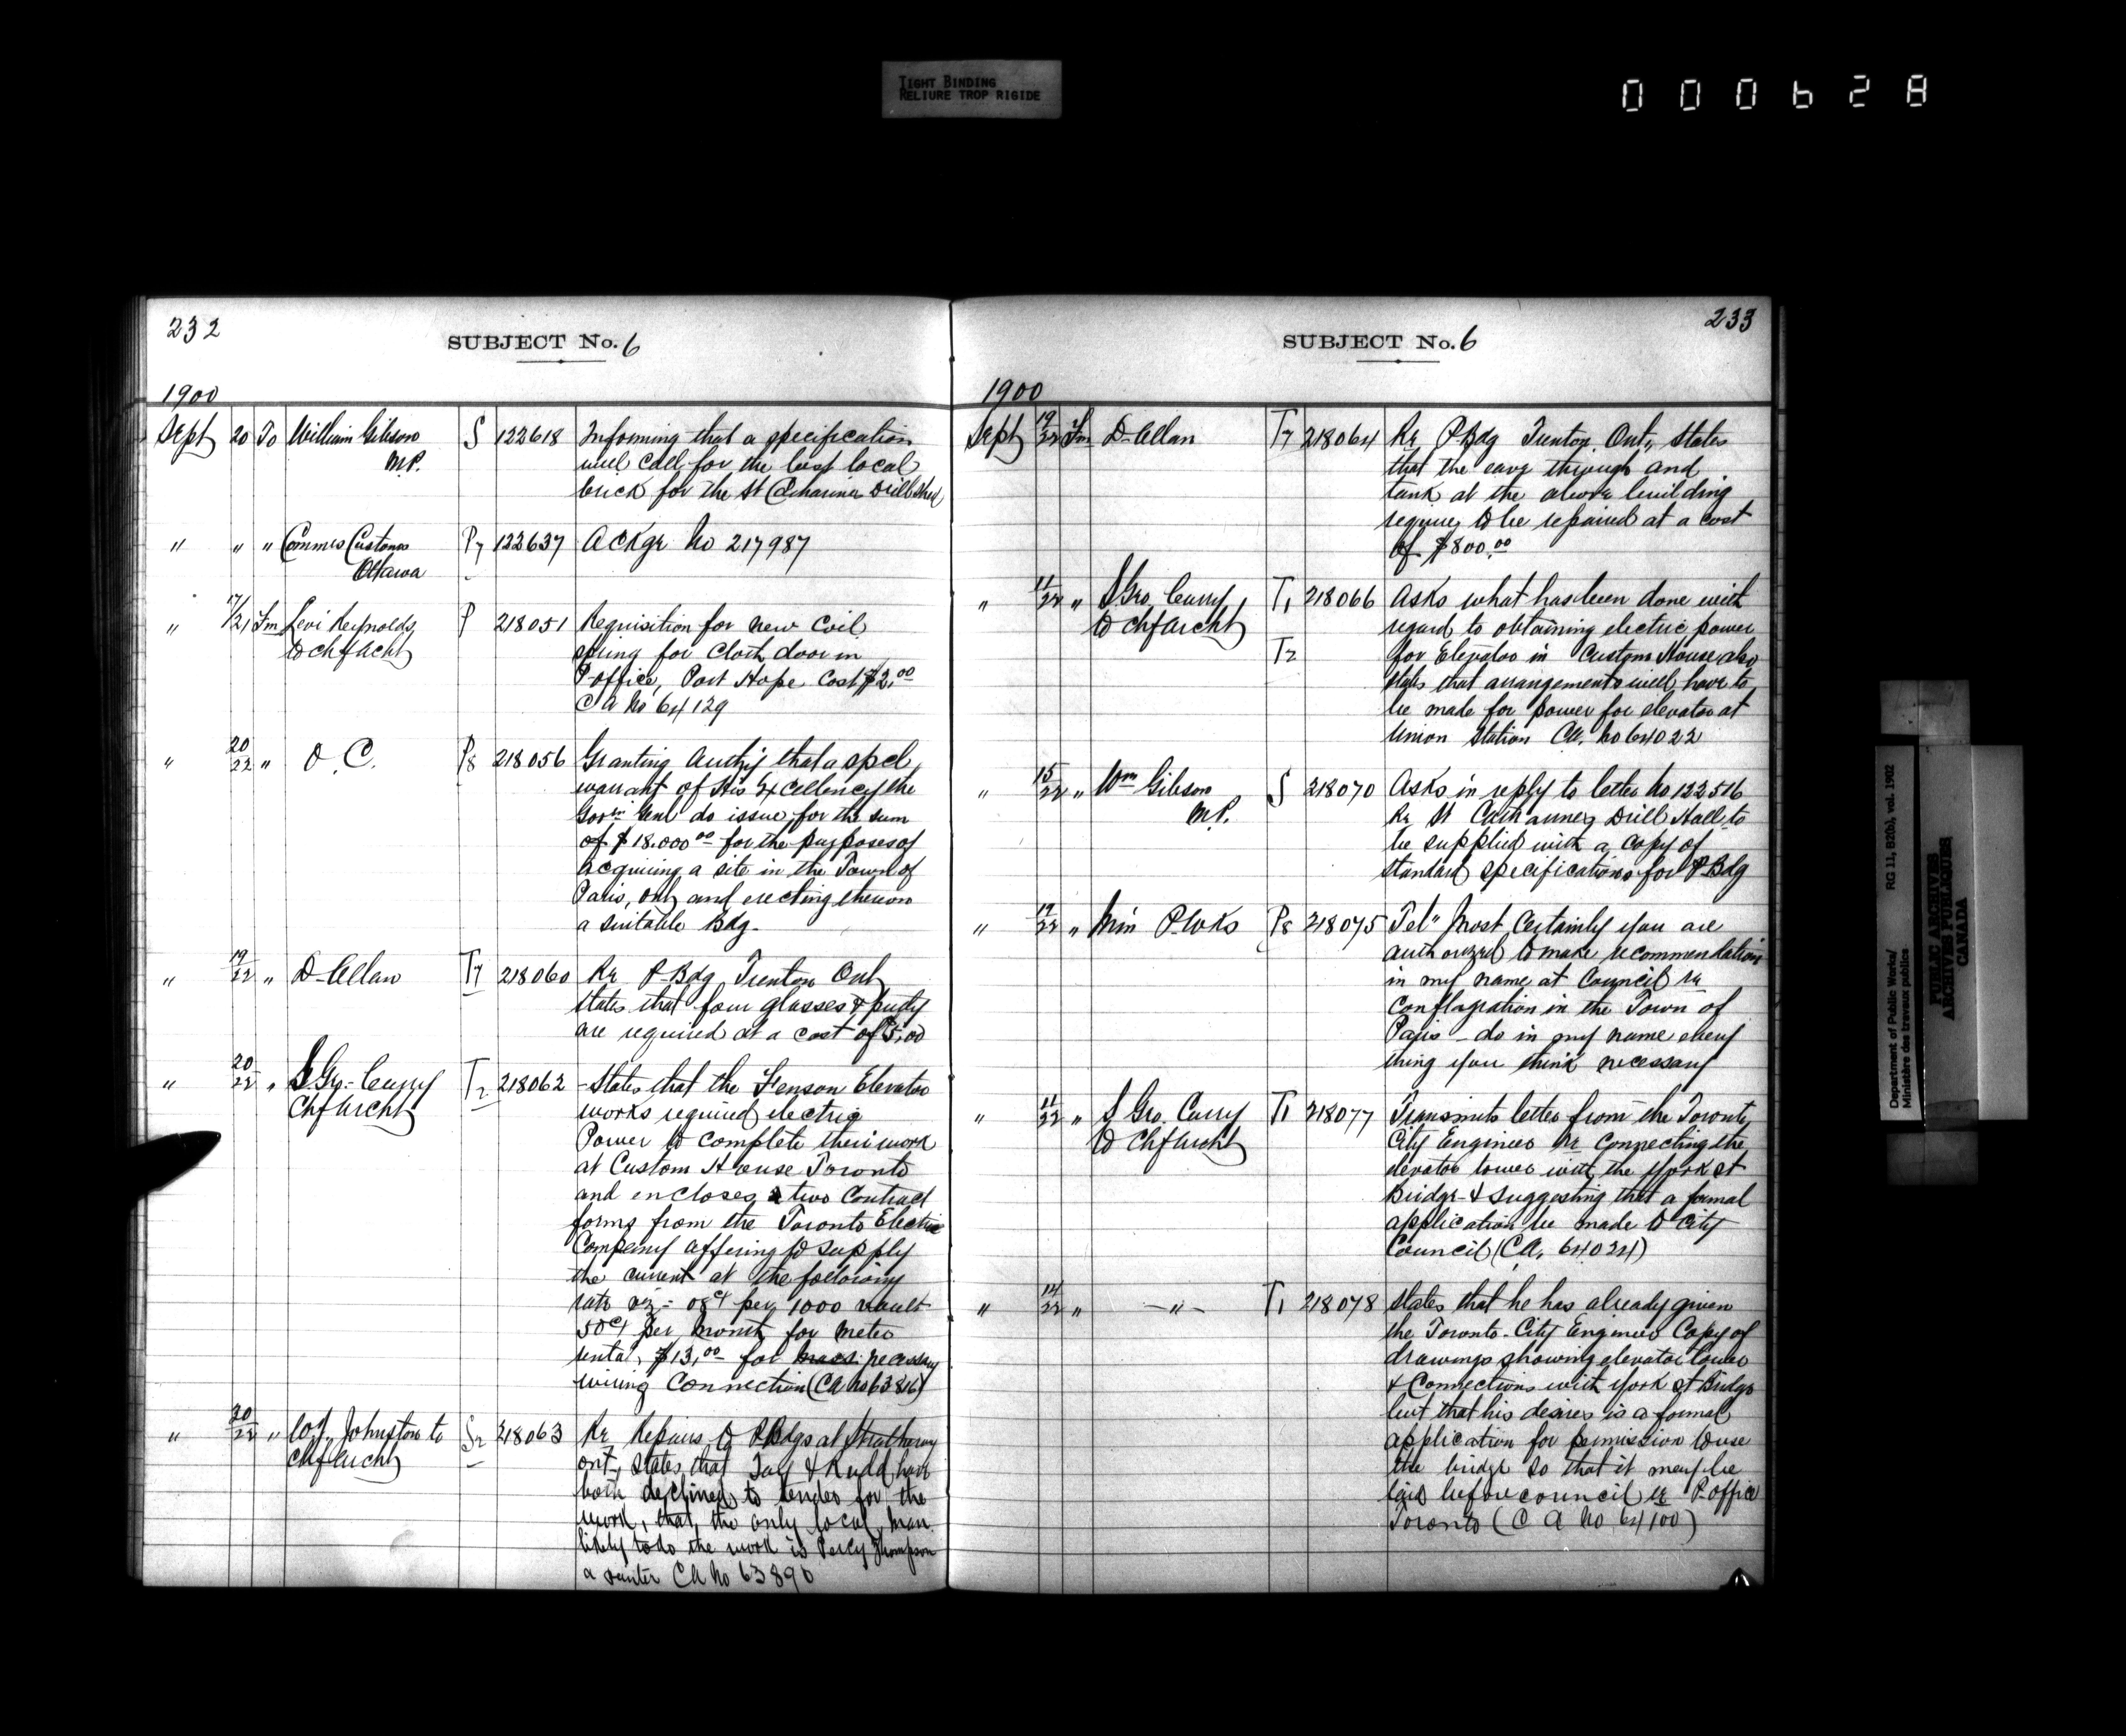 TIGHT BINDING
RELIURE TROP RIGIDE
000628
232
SUBJECT No. 6
1900
Sept 20 To William Gibson S 122618 Informing that a specification
M.P. will call for the best local
brick for the St Catharines Drill Shed
" " " Commes Customs P7 122637 Ackgr No 217987
Ottawa
" 17/21 Fm Levi Reynolds P 218051 Requisition for new Coil
to Chf Acht spring for Cloth door in
P. office, Port Hope Cost $2.00
C A No 64129
" 20/22 " O. C. P8 218056 Granting Authy that a spcl
warrant of His Excellency the
Govr Genl do issue for the sum
of $18.000 00 for the purposes of
acquiring a site in the Town of
Paris, Ont, and erecting thereon
a suitable Bdg.
" 19/22 " D. Allan T7 218060 Re P. Bdg Trenton Ont
states that four glasses & putty
are required at a cost of $5.00
" 20/22 " S. Geo. Curry T2 218062 States that the Fenson Elevator
Chf Archt works required electric
Power to complete their work
at Custom House Toronto
and encloses two Contract
forms from the Toronto Electric
Company offering to supply
the current at the following
rate viz - 08 ct per 1000
50 ct per month for meter
rental, $13.00 for necessary
wiring Connection (CA No 63816)
" 20/22 " Johnston to S2 218063 Re Repairs to P. Bdgs at Strathroy
Chf Archt ont, states that & Rudd have
both declined to tender for the
work, that the only local man
likely to do the work is Percy Thompson
a CA No 63890
233
SUBJECT No. 6
1900
Sept 19/22 Fm D. Allan T7 218064 Re P. Bdg Trenton Ont., states
that the eave through and
tank at the above building
require to be repaired at a cost
of $800.00
" 11/22 " S. Geo. Curry T1 218066 Asks what has been done with
to Chf Archt regard to obtaining electric power
T2 for Elevator in Custom House also
states that arrangements will have to
be made for power for elevator at
Union Station CA. No 64022
" 15/22 " Wm Gibson S 218070 Asks in reply to letter No 122516
M.P. Re St Catharines Drill Hall to
be supplied with a copy of
standard specifications for P. Bdg
" 19/22 " Min P. Wks P8 218075 Tel" Most Certainly you are
authorized to make recommendations
in my name at Council re
Conflagration in the Town of
Paris - do in my name every
thing you think necessary
" 11/22 " S. Geo. Curry T1 218077 Transmits letter from the Toronto
to Chf Archt City Engineer Re Connecting the
elevator tower with the York st
Bridge & suggesting that a formal
application be made to City
Council (CA. 64024)
" 14/22 " - " - T1 218078 States that he has already given
the Toronto City Engineer Copy of
drawings showing elevator tower
& Connections with York st Bridge
but that his desires is a formal
application for permission to use
the bridge so that it may be
laid before council re P. office
Toronto (C A No 64100)
Department of Public Works/
Ministère des travaux publics
RG 11, B2(b), vol. 1902
PUBLIC ARCHIVES
ARCHIVES PUBLIQUES
CANADA